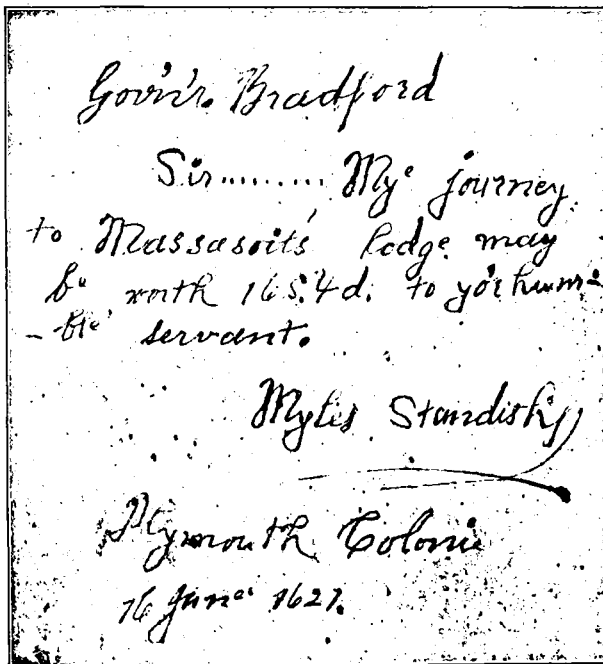 Gov'n'r. Bradford
Sir......... Mye journey
to Massasoit's lodge may
be worth 16s.4d. to yo'r hum-
-ble servant.
Myles Standish
Plymouth Colonie
16 June 1621.